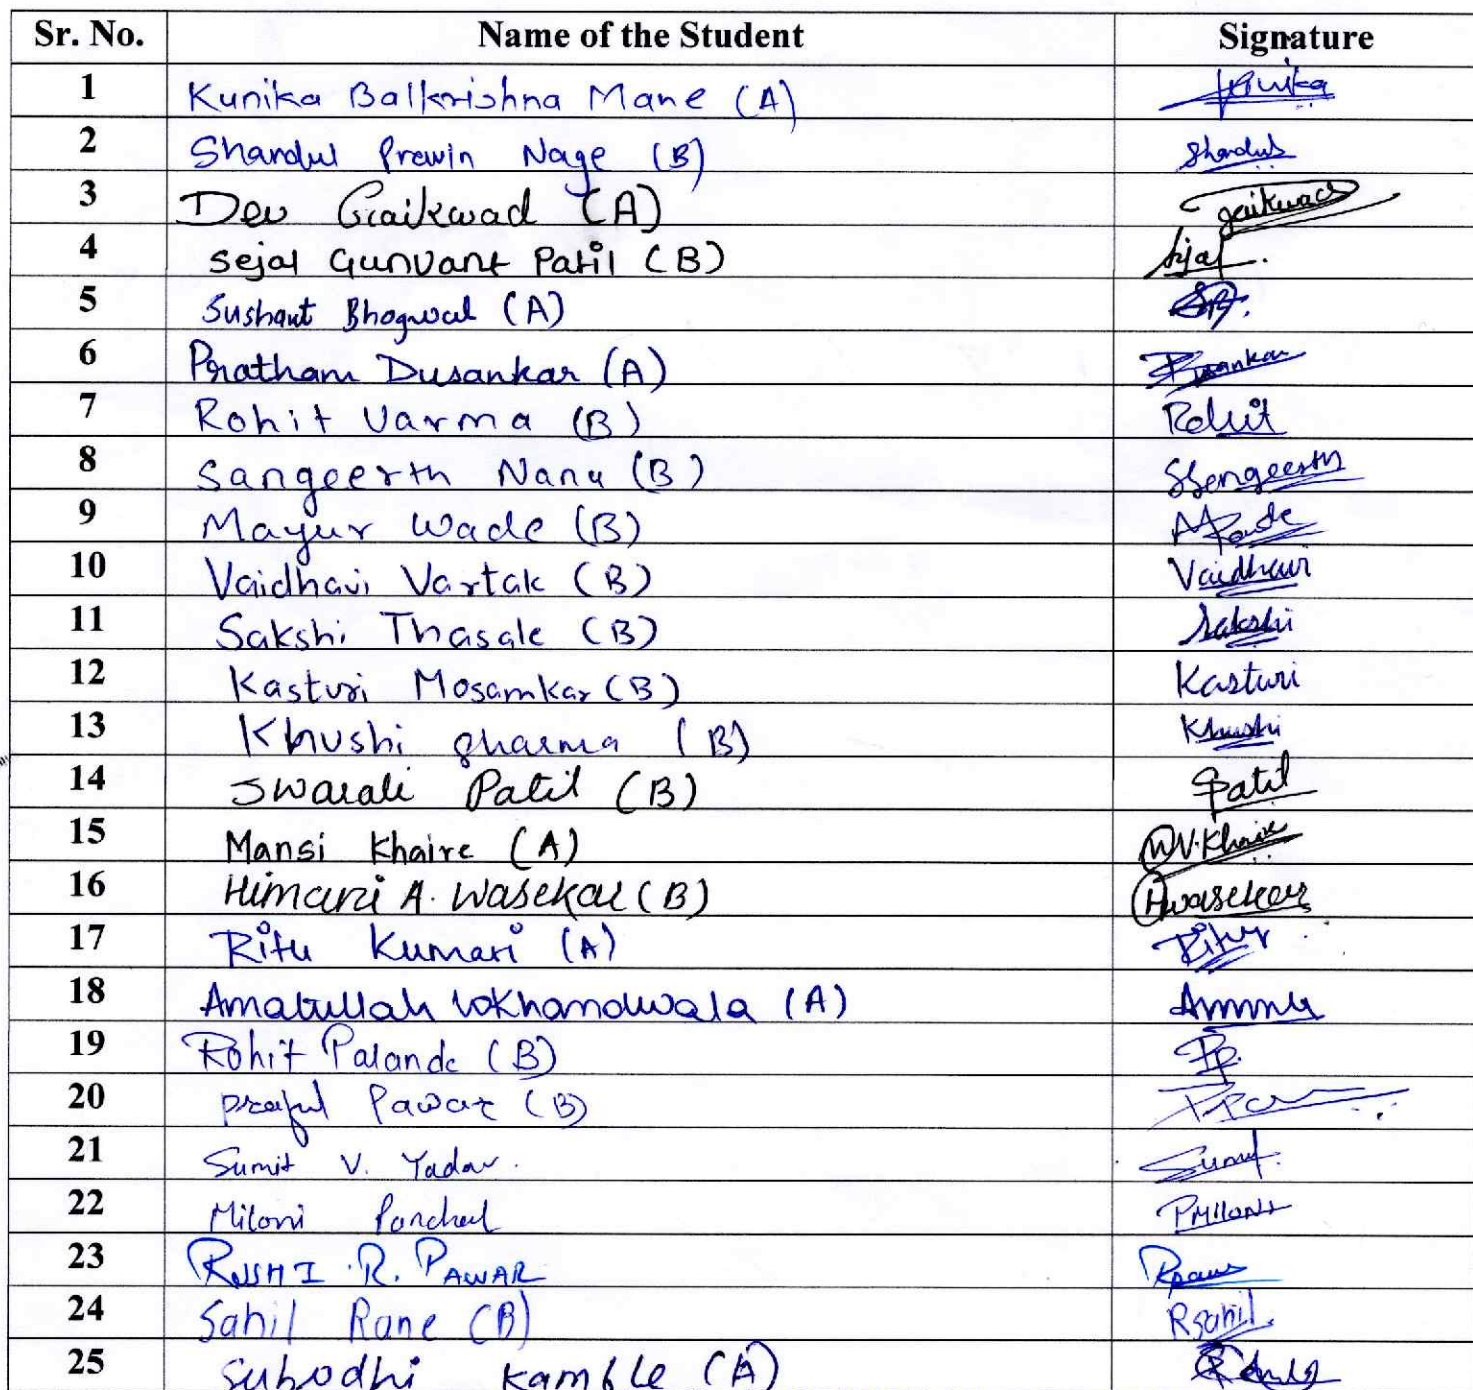 Sr. No. Name of the Student Signature
1 Kunika Balkrishna Mane (A) Kunika
2 Shardul Pravin Nage (B) Shardul
3 Dev Gaikwad (A) Gaikwad
4 Sejal Gunvant Patil (B) Sejal.
5 Sushant Bhogwal (A)
6 Pratham Dusankar (A) Dusankar
7 Rohit Varma (B) Rohit
8 Sangeerth Nanu (B) SSangeerth
9 Mayur Wade (B)
10 Vaidhavi Vartak (B) Vaidhavi
11 Sakshi Thasale (B) Sakshi
12 Kasturi Mosamkar (B) Kasturi
13 Khushi Sharma (B) Khushi
14 Swarali Patil (B) Spatil
15 Mansi Khaire (A) MV.Khaire
16 Himani A. Wasekar (B) HWasekar
17 Ritu Kumari (A) Ritu
18 Amatullah Lokhandwala (A)
19 Rohit Palande (B) Rp.
20 Praful Pawar (B)
21 Sumit V. Yadav. Sumit.
22 Miloni Panchal PMiloni
23 RUSHI .R. PAWAR Rpawar
24 Sahil Rane (B) Rsahil.
25 Subodhi Kamble (A)